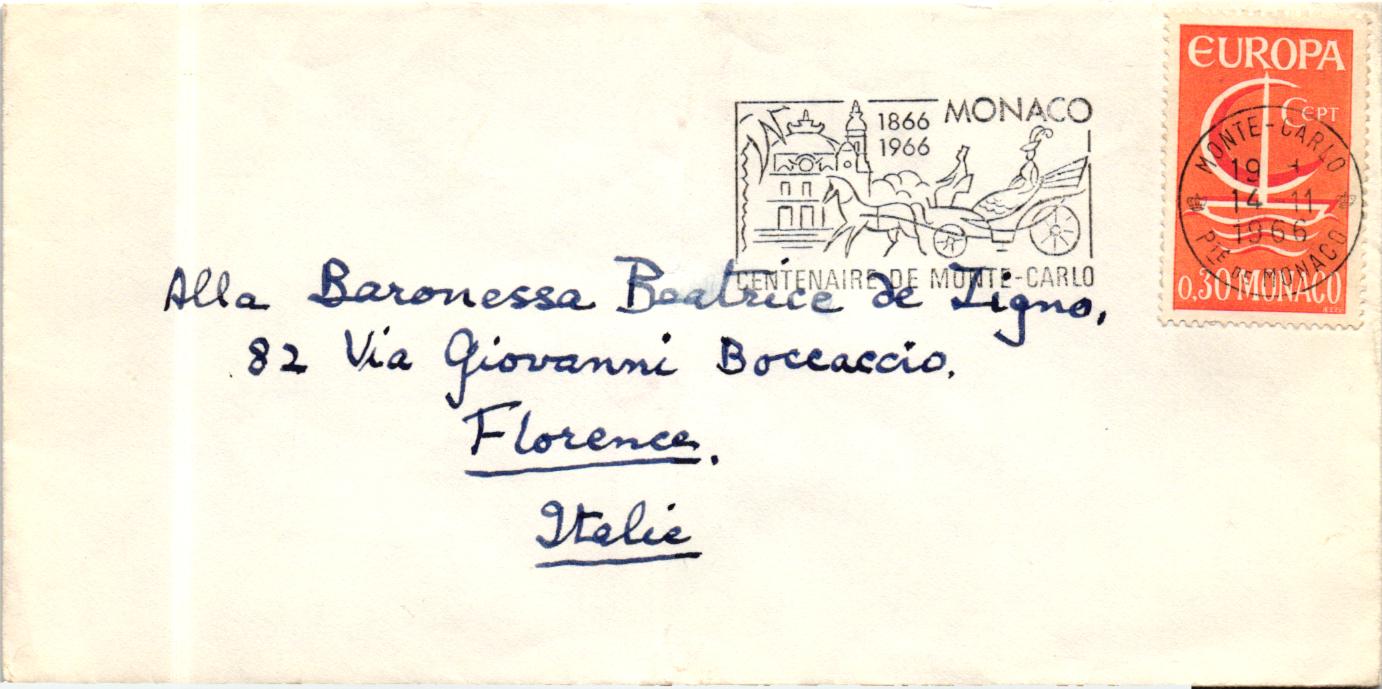 EUROPA
CEPT
1866 MONACO
1966
MONTE-CARLO
19
14-11
1966
PTE DE MONACO
0,30 MONACO
CENTENAIRE DE MONTE-CARLO
Alla Baronessa Beatrice de Zigno,
82 Via Giovanni Boccaccio.
Florence.
Italie